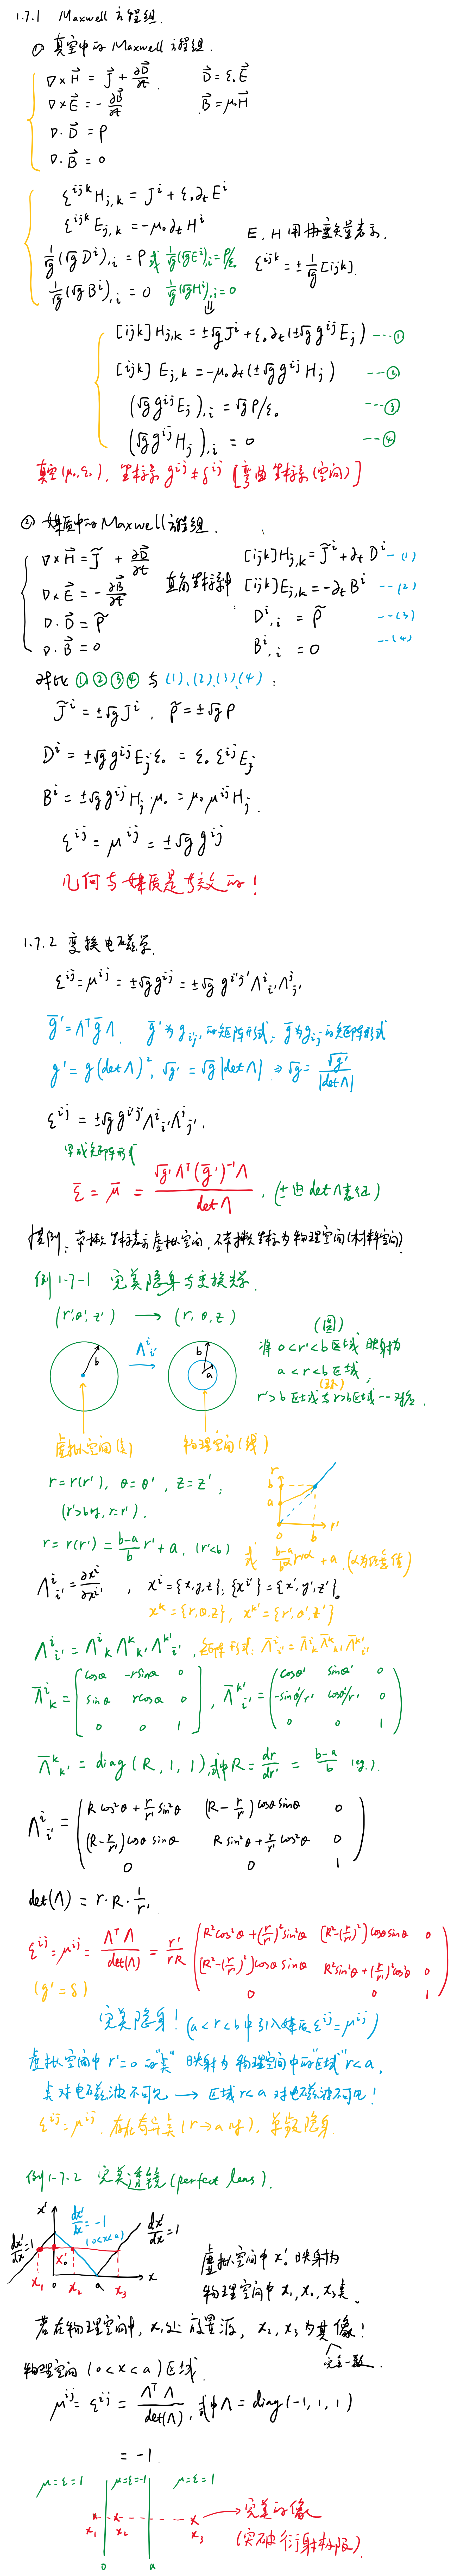 1.7.1 Maxwell 方程组.
① 真空中的 Maxwell 方程组.
∇×H⃗ = J⃗ + ∂D⃗/∂t    D⃗ = ε₀E⃗
∇×E⃗ = -∂B⃗/∂t    B⃗ = μ₀H⃗
∇·D⃗ = ρ
∇·B⃗ = 0
ε^{ijk}H_{j,k} = J^i + ε₀∂_tE^i
ε^{ijk}E_{j,k} = -μ₀∂_tH^i    E, H 用协变矢量表示.
1/√g(√g D^i)_{,i} = ρ 或 1/√g(√g E^i)_{,i} = ρ/ε₀    ε^{ijk} = ±1/√g[ijk].
1/√g(√g B^i)_{,i} = 0    1/√g(√g H^i)_{,i} = 0
⇓
[ijk]H_{j,k} = ±√g J^i + ε₀∂_t(±√g g^{ij}E_j) ---①
[ijk]E_{j,k} = -μ₀∂_t(±√g g^{ij}H_j) ---②
(√g g^{ij}E_j)_{,i} = √g ρ/ε₀ ---③
(√g g^{ij}H_j)_{,i} = 0 ---④
真空(μ₀,ε₀), 坐标系 g^{ij}≠δ^{ij} [弯曲坐标系(空间)]
② 媒质中的 Maxwell 方程组.
∇×H⃗ = J̃ + ∂D⃗/∂t    [ijk]H_{j,k} = J̃^i + ∂_tD^i --(1)
∇×E⃗ = -∂B⃗/∂t    直角坐标系中    [ijk]E_{j,k} = -∂_tB^i --(2)
∇·D⃗ = ρ̃    D^i_{,i} = ρ̃ --(3)
∇·B⃗ = 0    B^i_{,i} = 0 --(4)
对比①②③④与(1),(2),(3),(4):
J̃^i = ±√g J^i, ρ̃ = ±√g ρ
D^i = ±√g g^{ij}E_j ε₀ = ε₀ ε^{ij}E_j
B^i = ±√g g^{ij}H_j·μ₀ = μ₀ μ^{ij}H_j.
ε^{ij} = μ^{ij} = ±√g g^{ij}
几何与媒质是等效的!
1.7.2 变换电磁学.
ε^{ij} = μ^{ij} = ±√g g^{ij} = ±√g g^{i'j'}Λ^i_{i'}Λ^j_{j'}
g̅' = Λ^T g̅ Λ, g̅' 为 g_{i'j'} 的矩阵形式, g̅ 为 g_{ij} 的矩阵形式
g' = g(detΛ)², √g' = √g|detΛ| ⇒ √g = √g'/|detΛ|
ε^{ij} = ±√g g^{i'j'}Λ^i_{i'}Λ^j_{j'}.
写成矩阵形式
ε̅ = μ̅ = √g' Λ^T(g̅')^{-1}Λ / detΛ, (±由detΛ表征)
惯例: 带撇坐标表示虚拟空间, 不带撇坐标为物理空间(材料空间)
例1-7-1 完美隐身与变换光学.
(r',θ',z') ⟶ (r,θ,z)    (圆)
b    Λ^i_{i'}    b    a    将 0<r'<b 区域映射为
a<r<b 区域, (环)
r'>b 区域与 r>b 区域一一对应.
虚拟空间(蓝)    物理空间(绿)
r = r(r'), θ = θ', z = z',
(r'>b时, r=r').
r = r(r') = (b-a)/b r' + a, (r'<b)    或 (b-a)/b^α r'^α + a. (α为任意值)
r    b    a    0    b    r'
Λ^i_{i'} = ∂x^i/∂x^{i'}, x^i = {x,y,z}, {x^{i'}} = {x',y',z'}.
x^k = {r,θ,z}, x^{k'} = {r',θ',z'}
Λ^i_{i'} = Λ^i_k Λ^k_{k'} Λ^{k'}_{i'}, 矩阵形式: Λ̅^i_{i'} = Λ̅^i_k Λ̅^k_{k'} Λ̅^{k'}_{i'}
Λ̅^i_k = [cosθ -rsinθ 0; sinθ rcosθ 0; 0 0 1], Λ̅^{k'}_{i'} = (cosθ' sinθ' 0; -sinθ'/r' cosθ'/r' 0; 0 0 1)
Λ̅^k_{k'} = diag(R,1,1), 式中 R = dr/dr' = (b-a)/b (eg.).
Λ^i_{i'} = (Rcos²θ + r/r' sin²θ (R - r/r')cosθsinθ 0; (R - r/r')cosθsinθ Rsin²θ + r/r' cos²θ 0; 0 0 1)
det(Λ) = r·R·1/r'.
ε^{ij} = μ^{ij} = Λ^TΛ/det(Λ) = r'/(rR) (R²cos²θ + (r/r')²sin²θ [R² - (r/r')²]cosθsinθ 0; [R² - (r/r')²]cosθsinθ R²sin²θ + (r/r')²cos²θ 0; 0 0 1)
(g' = δ)
完美隐身! (a<r<b中引入媒质 ε^{ij} = μ^{ij})
虚拟空间中 r'=0 的"点" 映射为物理空间中的"区域" r<a,
点对电磁波不可见 → 区域 r<a 对电磁波不可见!
ε^{ij} = μ^{ij}. 存在奇异点(r→a时), 单频隐身.
例1-7-2 完美透镜 (perfect lens).
x'    dx'/dx = -1    (0<x<a)    dx'/dx = 1
dx'/dx = 1    x'₀    虚拟空间中 x'₀ 映射为
x₁    0    x₂    a    x₃    x    物理空间中 x₁,x₂,x₃点.
若在物理空间中, x₁处放置源, x₂,x₃为其像!
物理空间(0<x<a)区域.    完全一致.
μ^{ij} = ε^{ij} = Λ^TΛ/det(Λ), 式中 Λ = diag(-1,1,1)
= -1.
μ=ε=1    μ=ε=-1    μ=ε=1
x₁    x₂    x₃    完美的像
(突破衍射极限).
0    a